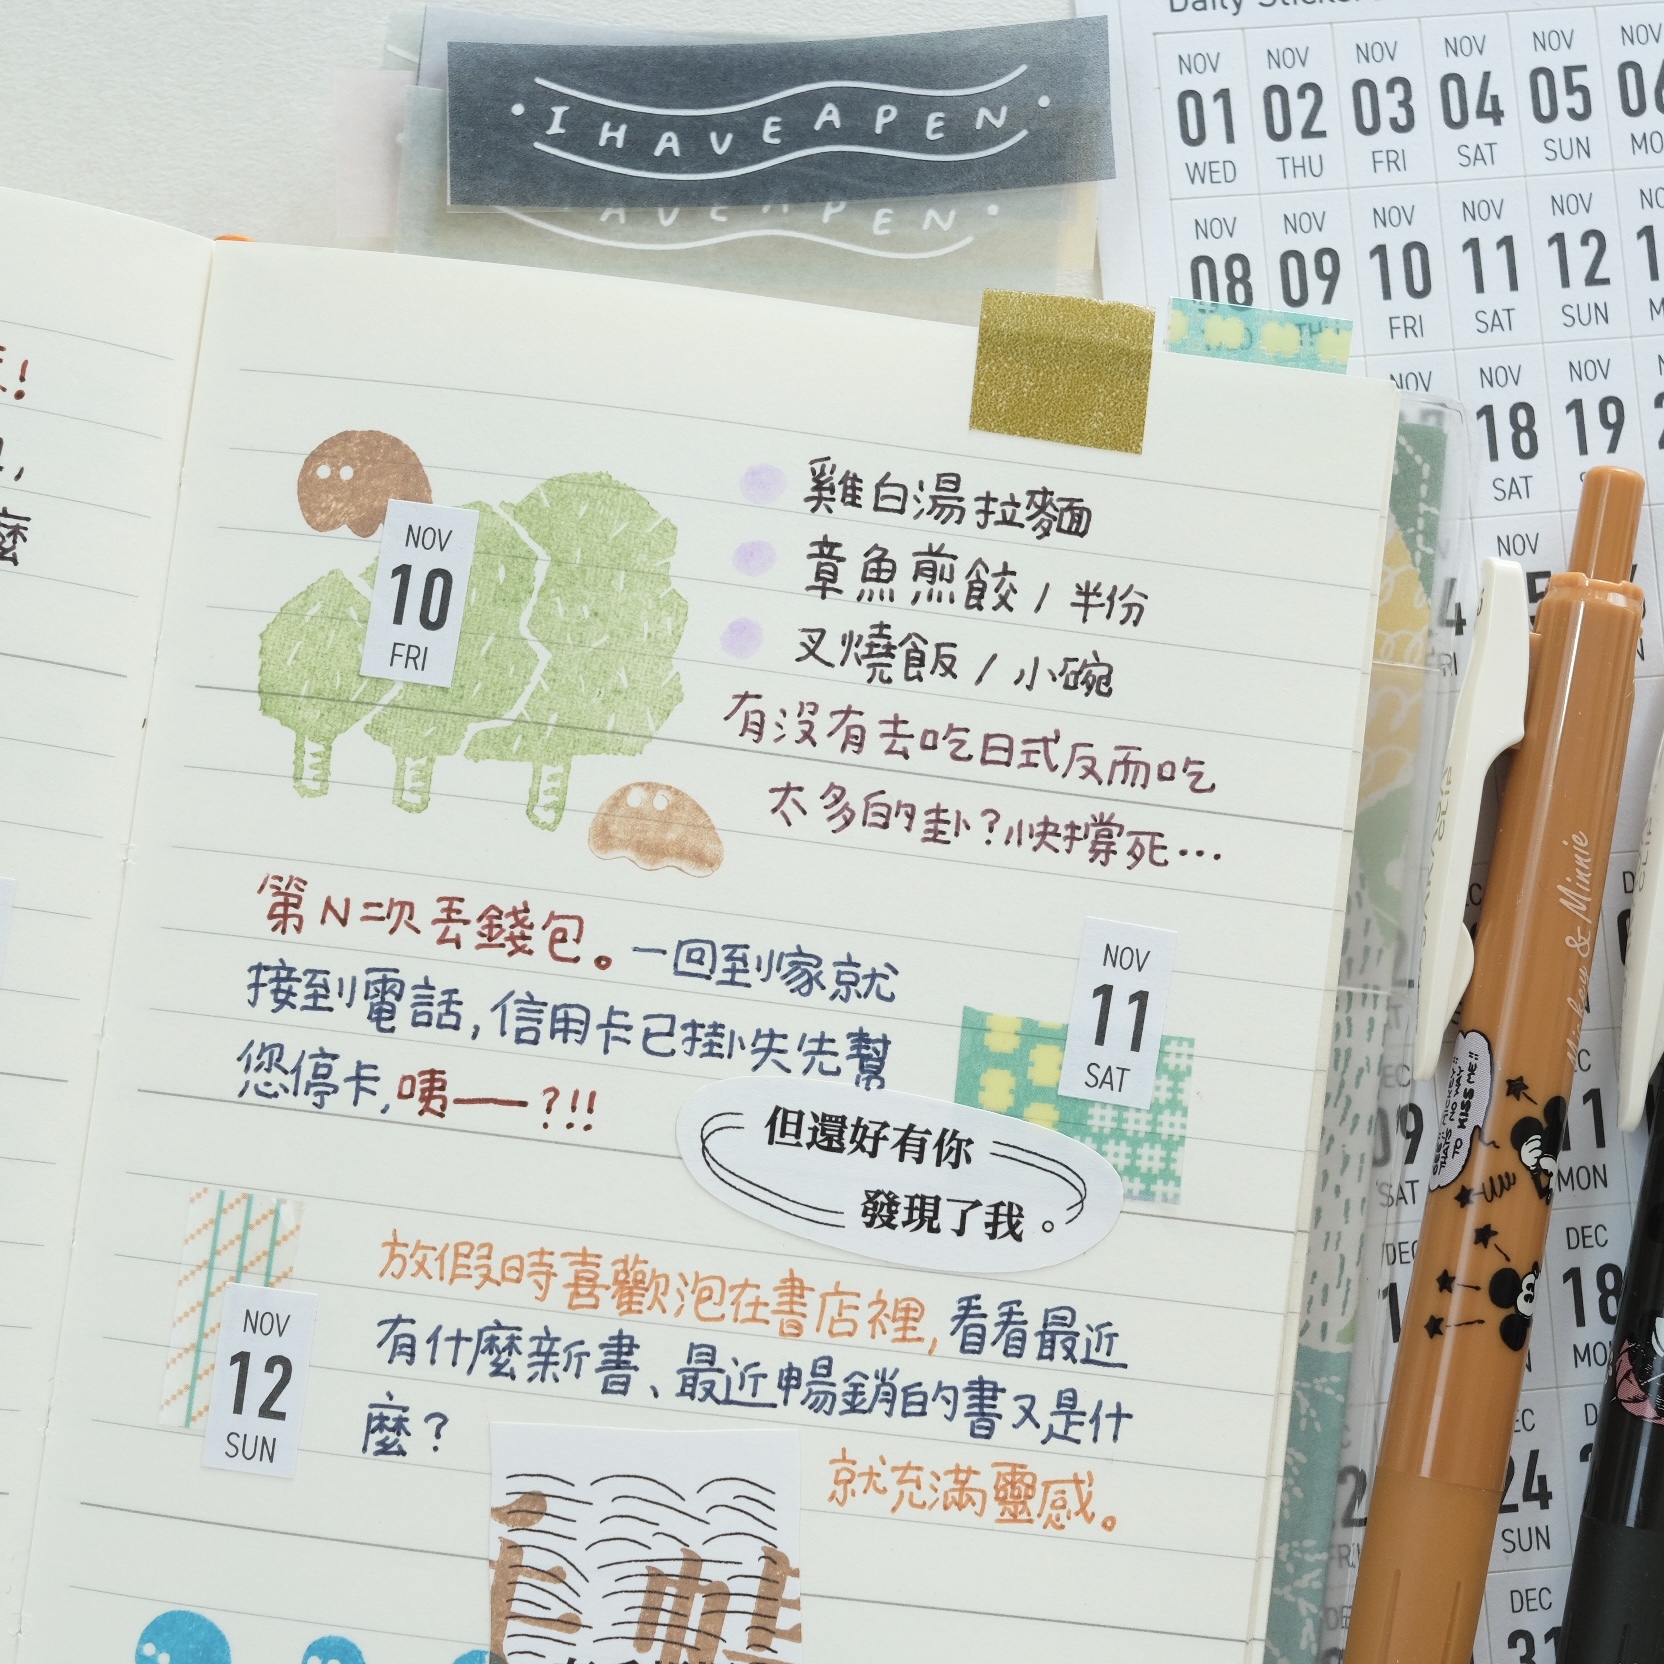 Daily Sticker
I HAVE A PEN
NOV NOV NOV NOV NOV NOV
01 02 03 04 05 06
WED THU FRI SAT SUN
NOV NOV NOV NOV NOV
08 09 10 11 12
FRI SAT SUN
NOV NOV NOV
18 19
SAT
NOV
NOV
10
FRI
雞白湯拉麵
章魚煎餃 / 半份
叉燒飯 / 小碗
有沒有去吃日式反而吃
太多的卦?快撐死…
第N次丟錢包。一回到家就
接到電話,信用卡已掛失先幫
您停卡,咦——?!!
NOV
11
SAT
但還好有你
發現了我。
NOV
12
SUN
放假時喜歡泡在書店裡,看看最近
有什麼新書、最近暢銷的書又是什
麼?
就充滿靈感。
Mickey & Minnie
TO KISS ME!!
11
MON
SAT
DEC
18
24
SUN
DEC
31